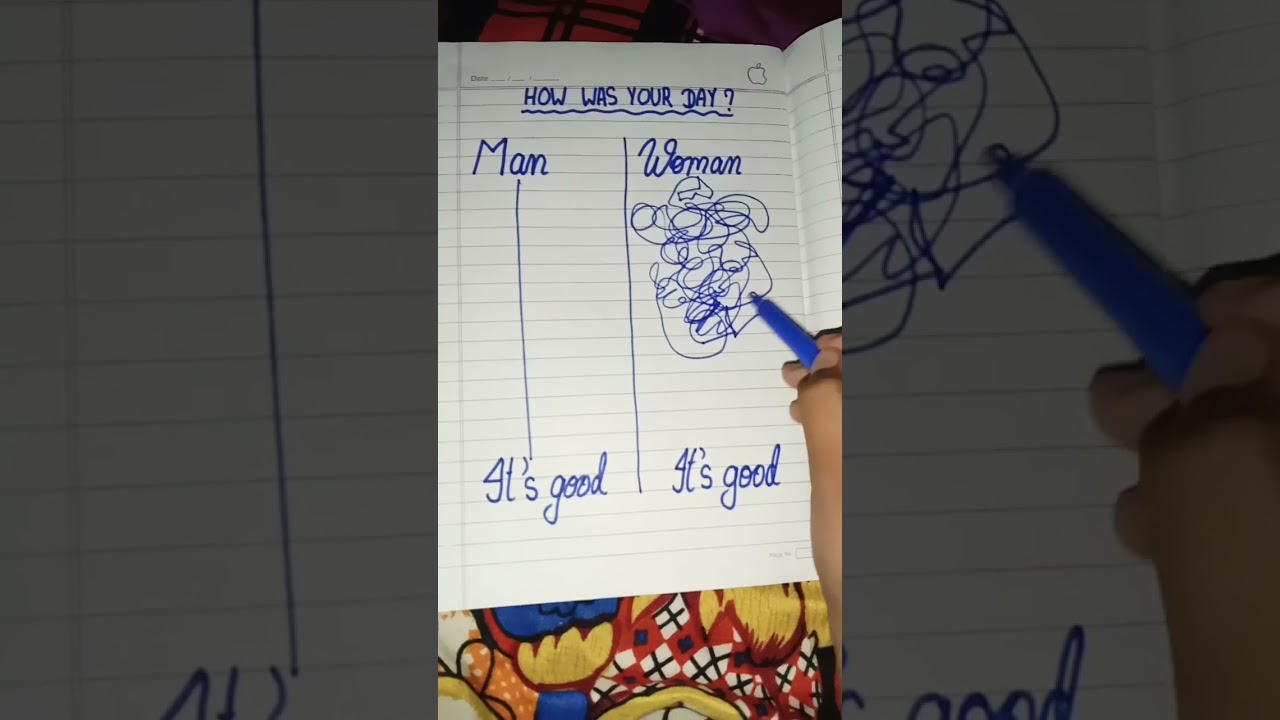 Date __ / __ / ____
HOW WAS YOUR DAY?
Man Woman
It's good It's good
Page No